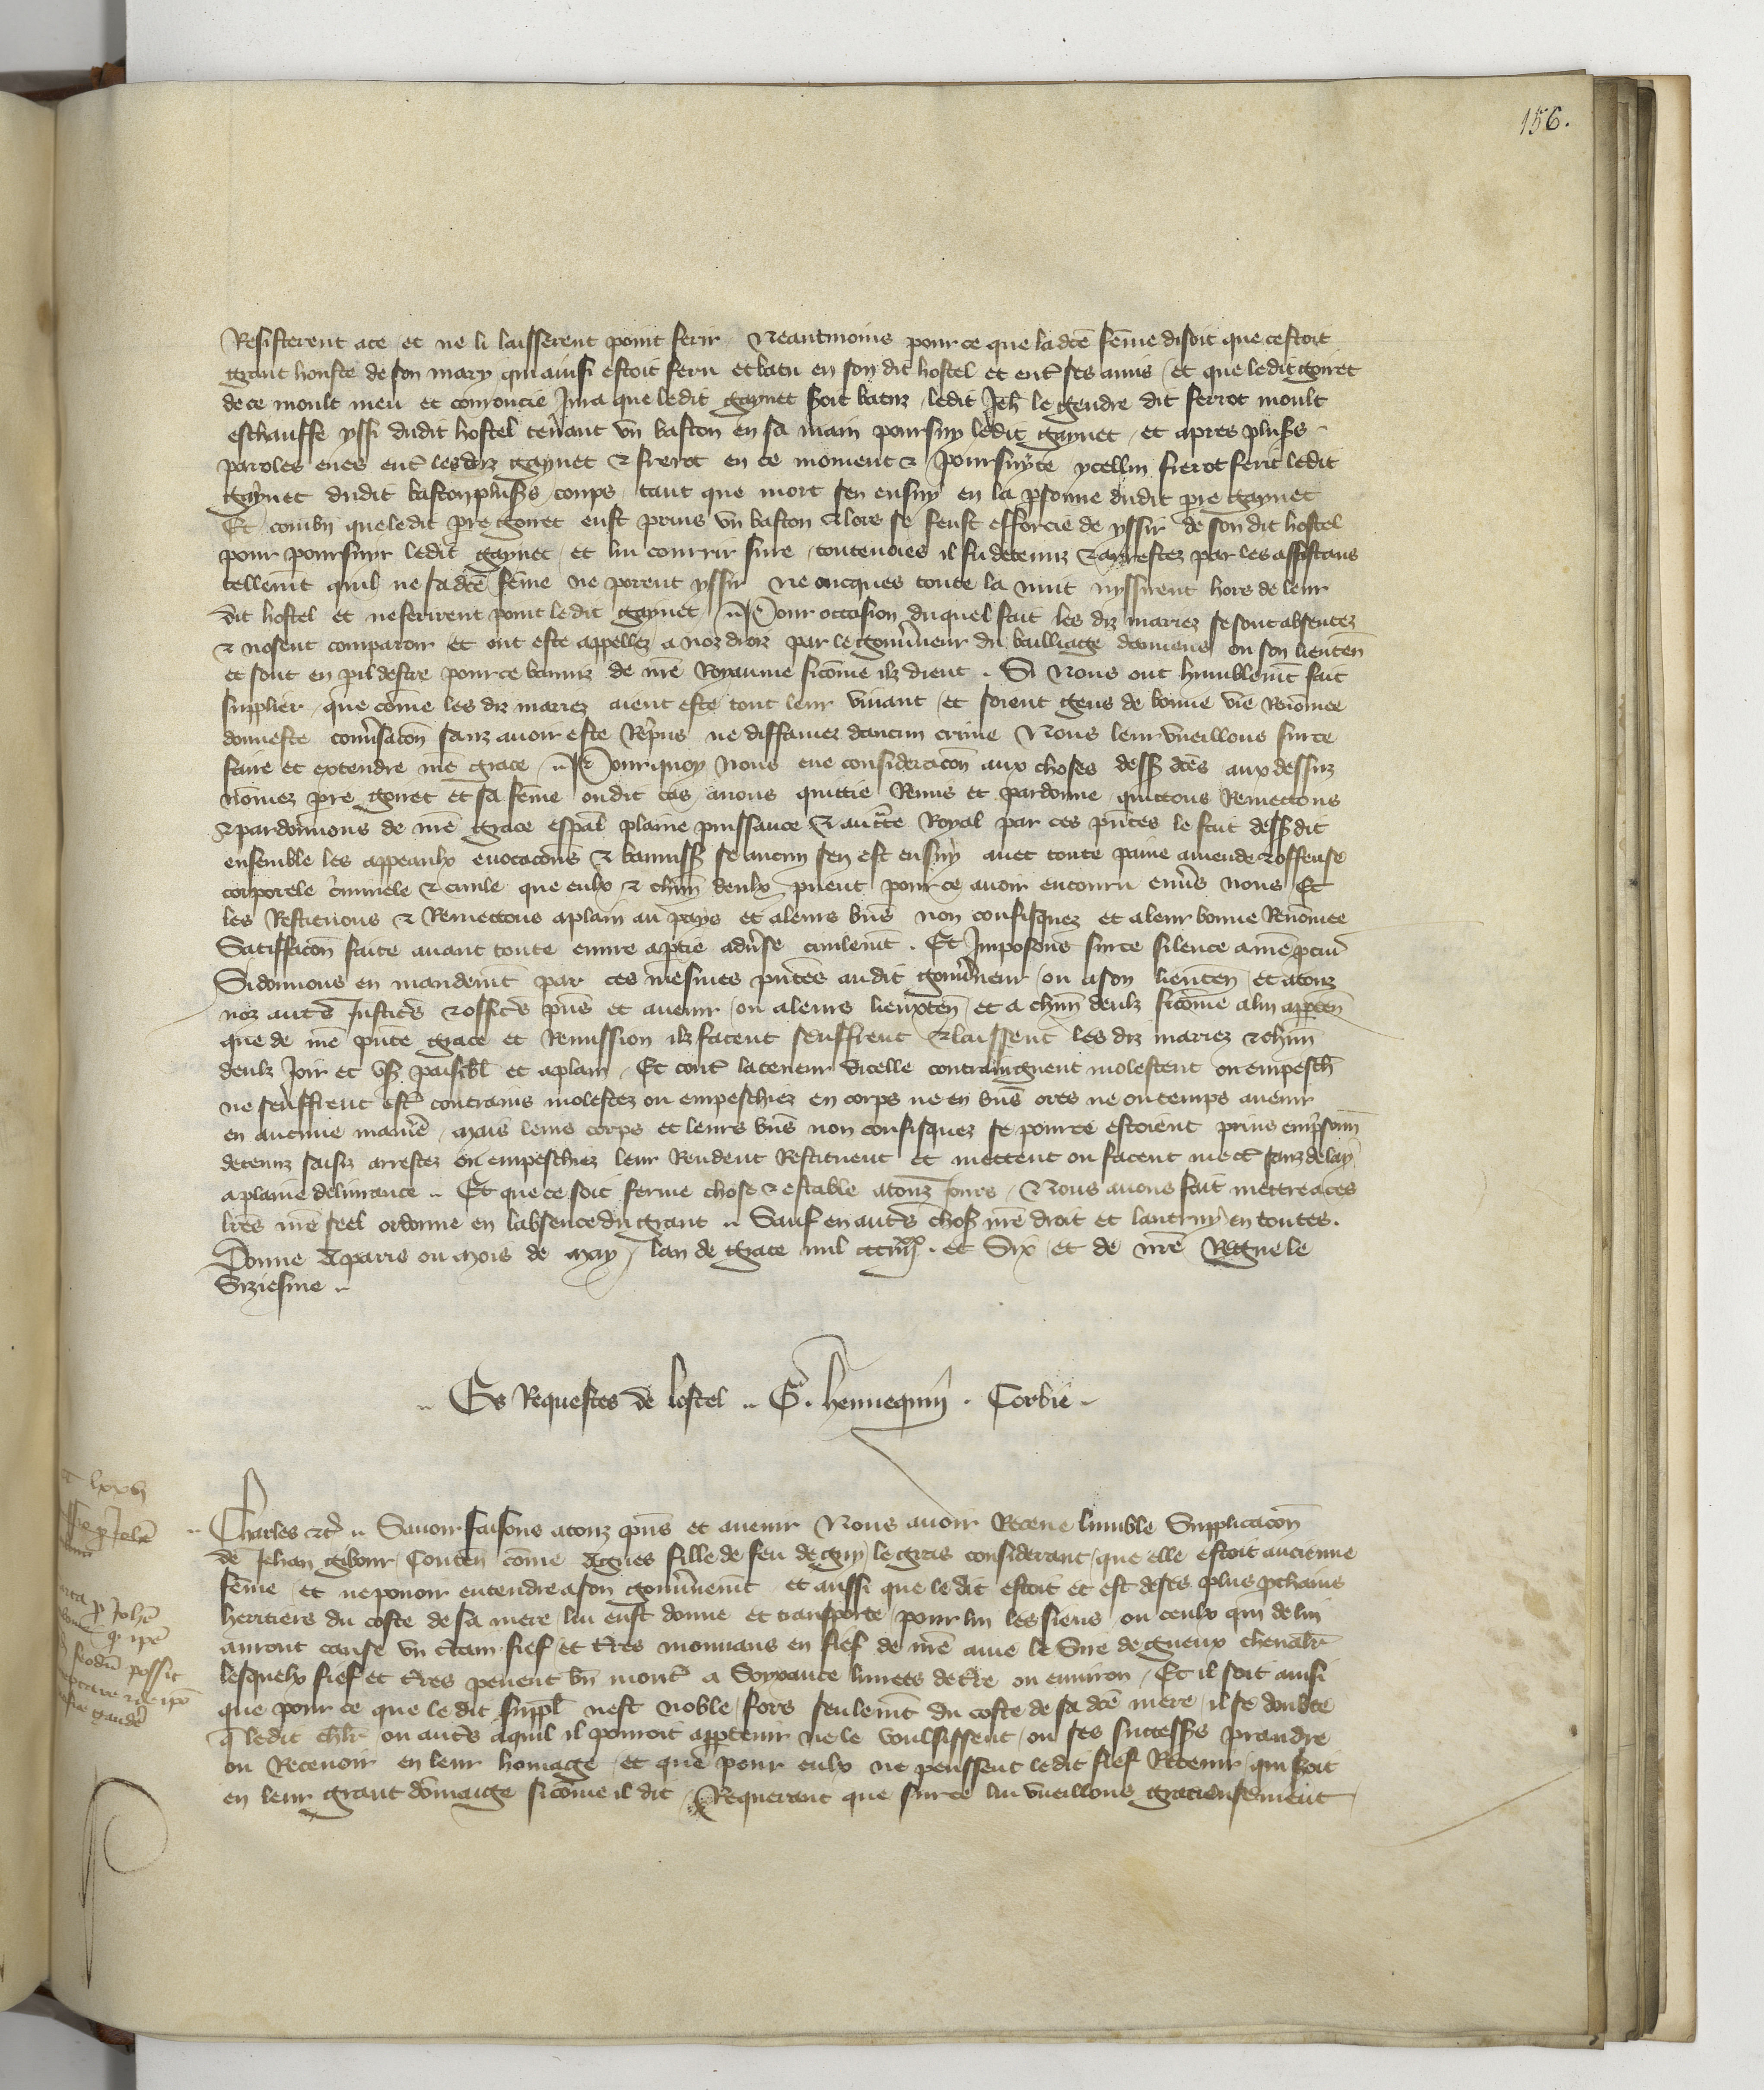 156.
Resisterent ace et ne li laisserent point ferir Neantmoins pour ce que ladcē fēme disoit que cestoit
grant honste de son mary qui ainsi estoit feru et batu en son dit hostel et ent̄ ses amis et que ledit gonet
de ce moult meu et courroucie Jura que ledit gaynet seroit batuz ledit Jeh̄ le gendre dit ferrot moult
eschauffe yssi dudit hostel tenant vn baston en sa main poursuy ledit gaynet et apres plus̄s
paroles eues ent̄ lesdiz gaynet & frerot en ce moment & poursuyte ycellui fierot feri ledit
gaynet dudit baston plus̄s coups tant que mort sen ensuy en la p̄sonne dudit pr̄e gaynet
Et combn̄ que ledit pr̄e gonet eust prins vn baston & lors se feust efforcie de yssir de son dit hostel
pour poursuyr ledit gaynet et lui courrir sure toutevoies il fu detenuz & arrestez par les assistans
tellemt̄ quil ne sa dcē fēme ne porent yssir ne oncques toute la nuit nyssirent hors de leur
dit hostel et ne ferirent point ledit gaynet Pour occasion duquel fait les diz mariez se sont absentez
& nosent comparoir et ont este appellez a noz droiz par le gouvn̄eur du bailliage dorniens ou son lieuten̄
et sont en pil destre pour ce banniz de nr̄e Royaume sicōme ilz dient Si Nous ont humblemt̄ fait
supplier que cōme les diz mariez aient este tout leur viuant et soient gens de bonne vie Renōmee
donneste conv̄sacōn sanz auoir este Repris ne diffamez daucun crime Nous leur vueillons surce
faire et extendre nr̄e grace Pourquoy Nous eue consideracōn aux choses dess̄ dcēs aux dessuz
nōmez pre gonet et sa fēme ou dit cas auons quittie Remis et pardonne quittons Remettons
& pardonnons de nr̄e grace espāl plaine puissance & auct̄te Royal par ces pn̄tes le fait dess̄dit
ensemble les appeaulx euocacōns & banniss̄ se aucun sen est ensuy auec toute paine amende & offense
corporele criminele & ciuile que eulx & chūn deulx pueut pour ce auoir encouru env̄s nous Et
les Restituons & Remettons aplain au pays et aleurs bn̄s non confisquez et aleur bonne Renōmee
Satiffacōn faite auant toute euure apt̄ie adūse ciuilemt̄ Et Imposons surce silence anr̄e pcur̄
Si donnons en mandemt̄ par ces mesmes pn̄tes audit gouvn̄eur ou a son lieuten̄ et atouz
noz aut̄s Justic̄s & offic̄s pn̄s et auenir ou aleurs lieuxten̄ et a chūn deulx sicōme alui apptēn
que de nr̄e pn̄te grace et Remission ilz facent seuffrent & laissent les diz mariez & chūn
deulz Joir et vs̄ paisibl̄ et aplain Et cont̄ la teneur dicelle contraingnent molestent ou empesch̄
ne seuffrent est̄ contrains molestez ou empeschiez en corps ne en bn̄s ores ne ou temps auenir
en aucune maniēe mais leurs corps et leurs bn̄s non confisquez se pource estoient prins emp̄sonn̄
detenuz saisiz arrestez ou empeschiez leur Rendent Restituent et mettent ou facent mect̄ sanz delay
aplaine deliurance Et que ce soit ferme chose & estable atouz jours Nous auons fait mettre aces
lr̄es nr̄e seel ordonne en labsence du grant Sauf en aut̄s chos̄ nr̄e droit et lautruy en toutes
Donne Aparis ou mois de May lan de grace mil cccīīīīxx et Six et de nr̄e Regne le
Siziesme
Es Requestes de lostel G. hennequin Corbie
Charles &c̄ Sauoir faisons atouz pn̄s et auenir Nous auoir Receue lumble Supplicacōn
de Jehan gibour Conten̄ cōme Agnes fille de feu de guy le gras considerant que elle estoit ancienne
fēme et ne pouoir entendre a son gouvn̄emt̄ et aussi que le dit estoit et est deses plus pchains
heritiers du coste de sa mere lui eust donne et transporte pour lui les siens ou ceulx qui de lui
auront cause vn c̄tain fief et t̄res mouuans en fief de nr̄e ame le Sire de gueux cheualr̄
lesquelx fief et t̄res peuent bn̄ mont̄ a Soyxante liurees de t̄re ou enuiron Et il soit ainsi
que pour ce que le dit suppl̄ nest noble fors seulemt̄ du coste de sa dcē mere il se doubte
q̄ ledit ch̄lr ou aut̄s aquil il pourroit apptenir ne le voulsissent ou ses success̄s prandre
ou Receuoir en leur homage et que pour eulx ne peussent ledit fief Retenir qui seroit
en leur grant dōmaige sicōme il dit Requerant que surce lui vueillons gracieusement